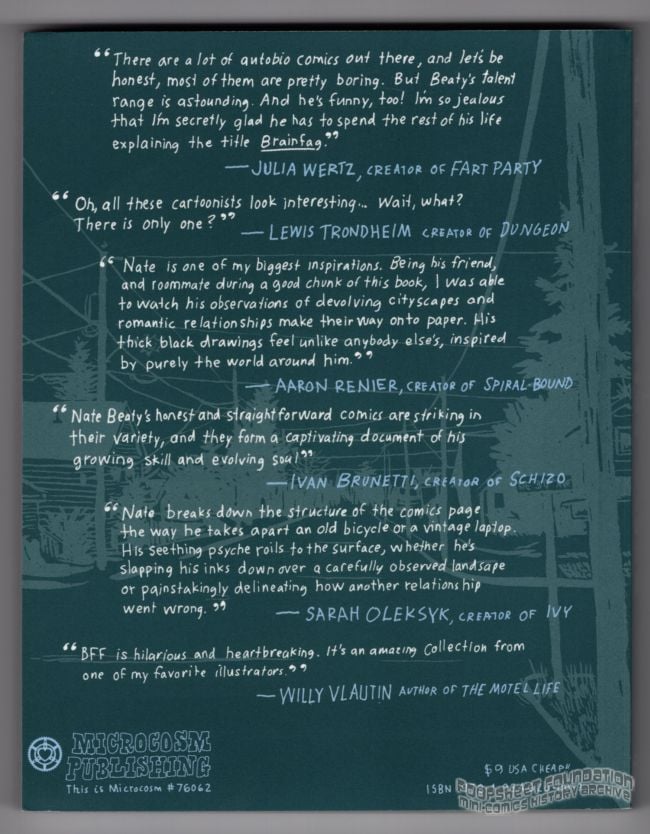 “There are a lot of autobio comics out there, and let's be
honest, most of them are pretty boring. But Beaty's talent
range is astounding. And he's funny, too! I'm so jealous
that I'm secretly glad he has to spend the rest of his life
explaining the title Brainfag.”
— JULIA WERTZ, CREATOR OF FART PARTY
“Oh, all these cartoonists look interesting... Wait, what?
There is only one?” — LEWIS TRONDHEIM CREATOR OF DUNGEON
“Nate is one of my biggest inspirations. Being his friend,
and roommate during a good chunk of this book, I was able
to watch his observations of devolving cityscapes and
romantic relationships make their way onto paper. His
thick black drawings feel unlike anybody else's, inspired
by purely the world around him.”
— AARON RENIER, CREATOR OF SPIRAL-BOUND
“Nate Beaty's honest and straightforward comics are striking in
their variety, and they form a captivating document of his
growing skill and evolving soul”
— IVAN BRUNETTI, CREATOR OF SCHIZO
“Nate breaks down the structure of the comics page
the way he takes apart an old bicycle or a vintage laptop.
His seething psyche roils to the surface, whether he's
slapping his inks down over a carefully observed landsape
or painstakingly delineating how another relationship
went wrong.” — SARAH OLEKSYK, CREATOR OF IVY
“BFF is hilarious and heartbreaking. It's an amazing collection from
one of my favorite illustrators.”
— WILLY VLAUTIN AUTHOR OF THE MOTEL LIFE
MICROCOSM
PUBLISHING
This is Microcosm #76062
$9 USA CHEAP!!
ISBN
POOPSHEET FOUNDATION
MINI-COMICS HISTORY ARCHIVE